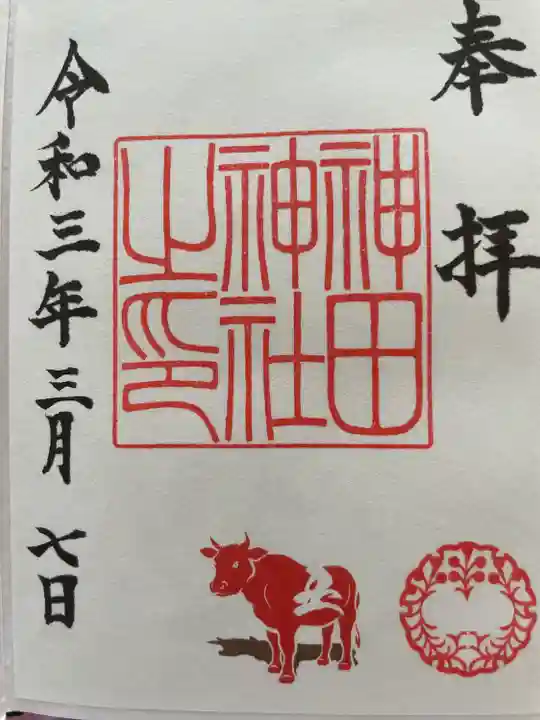 奉拝
神田
神社
之印
令和三年三月七日